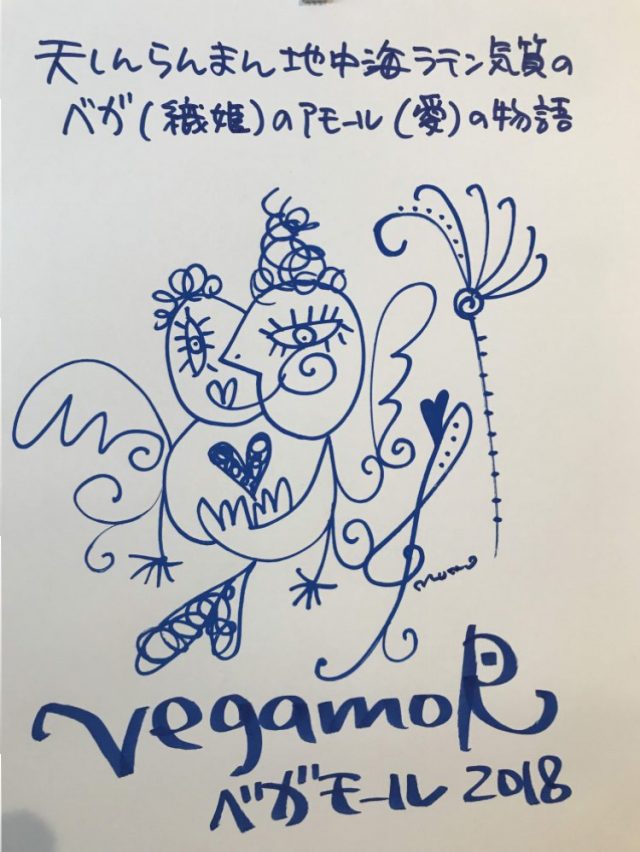 天しんらんまん地中海ラテン気質の
ベガ(織姫)のアモール(愛)の物語
vegamoR
ベガモール 2018